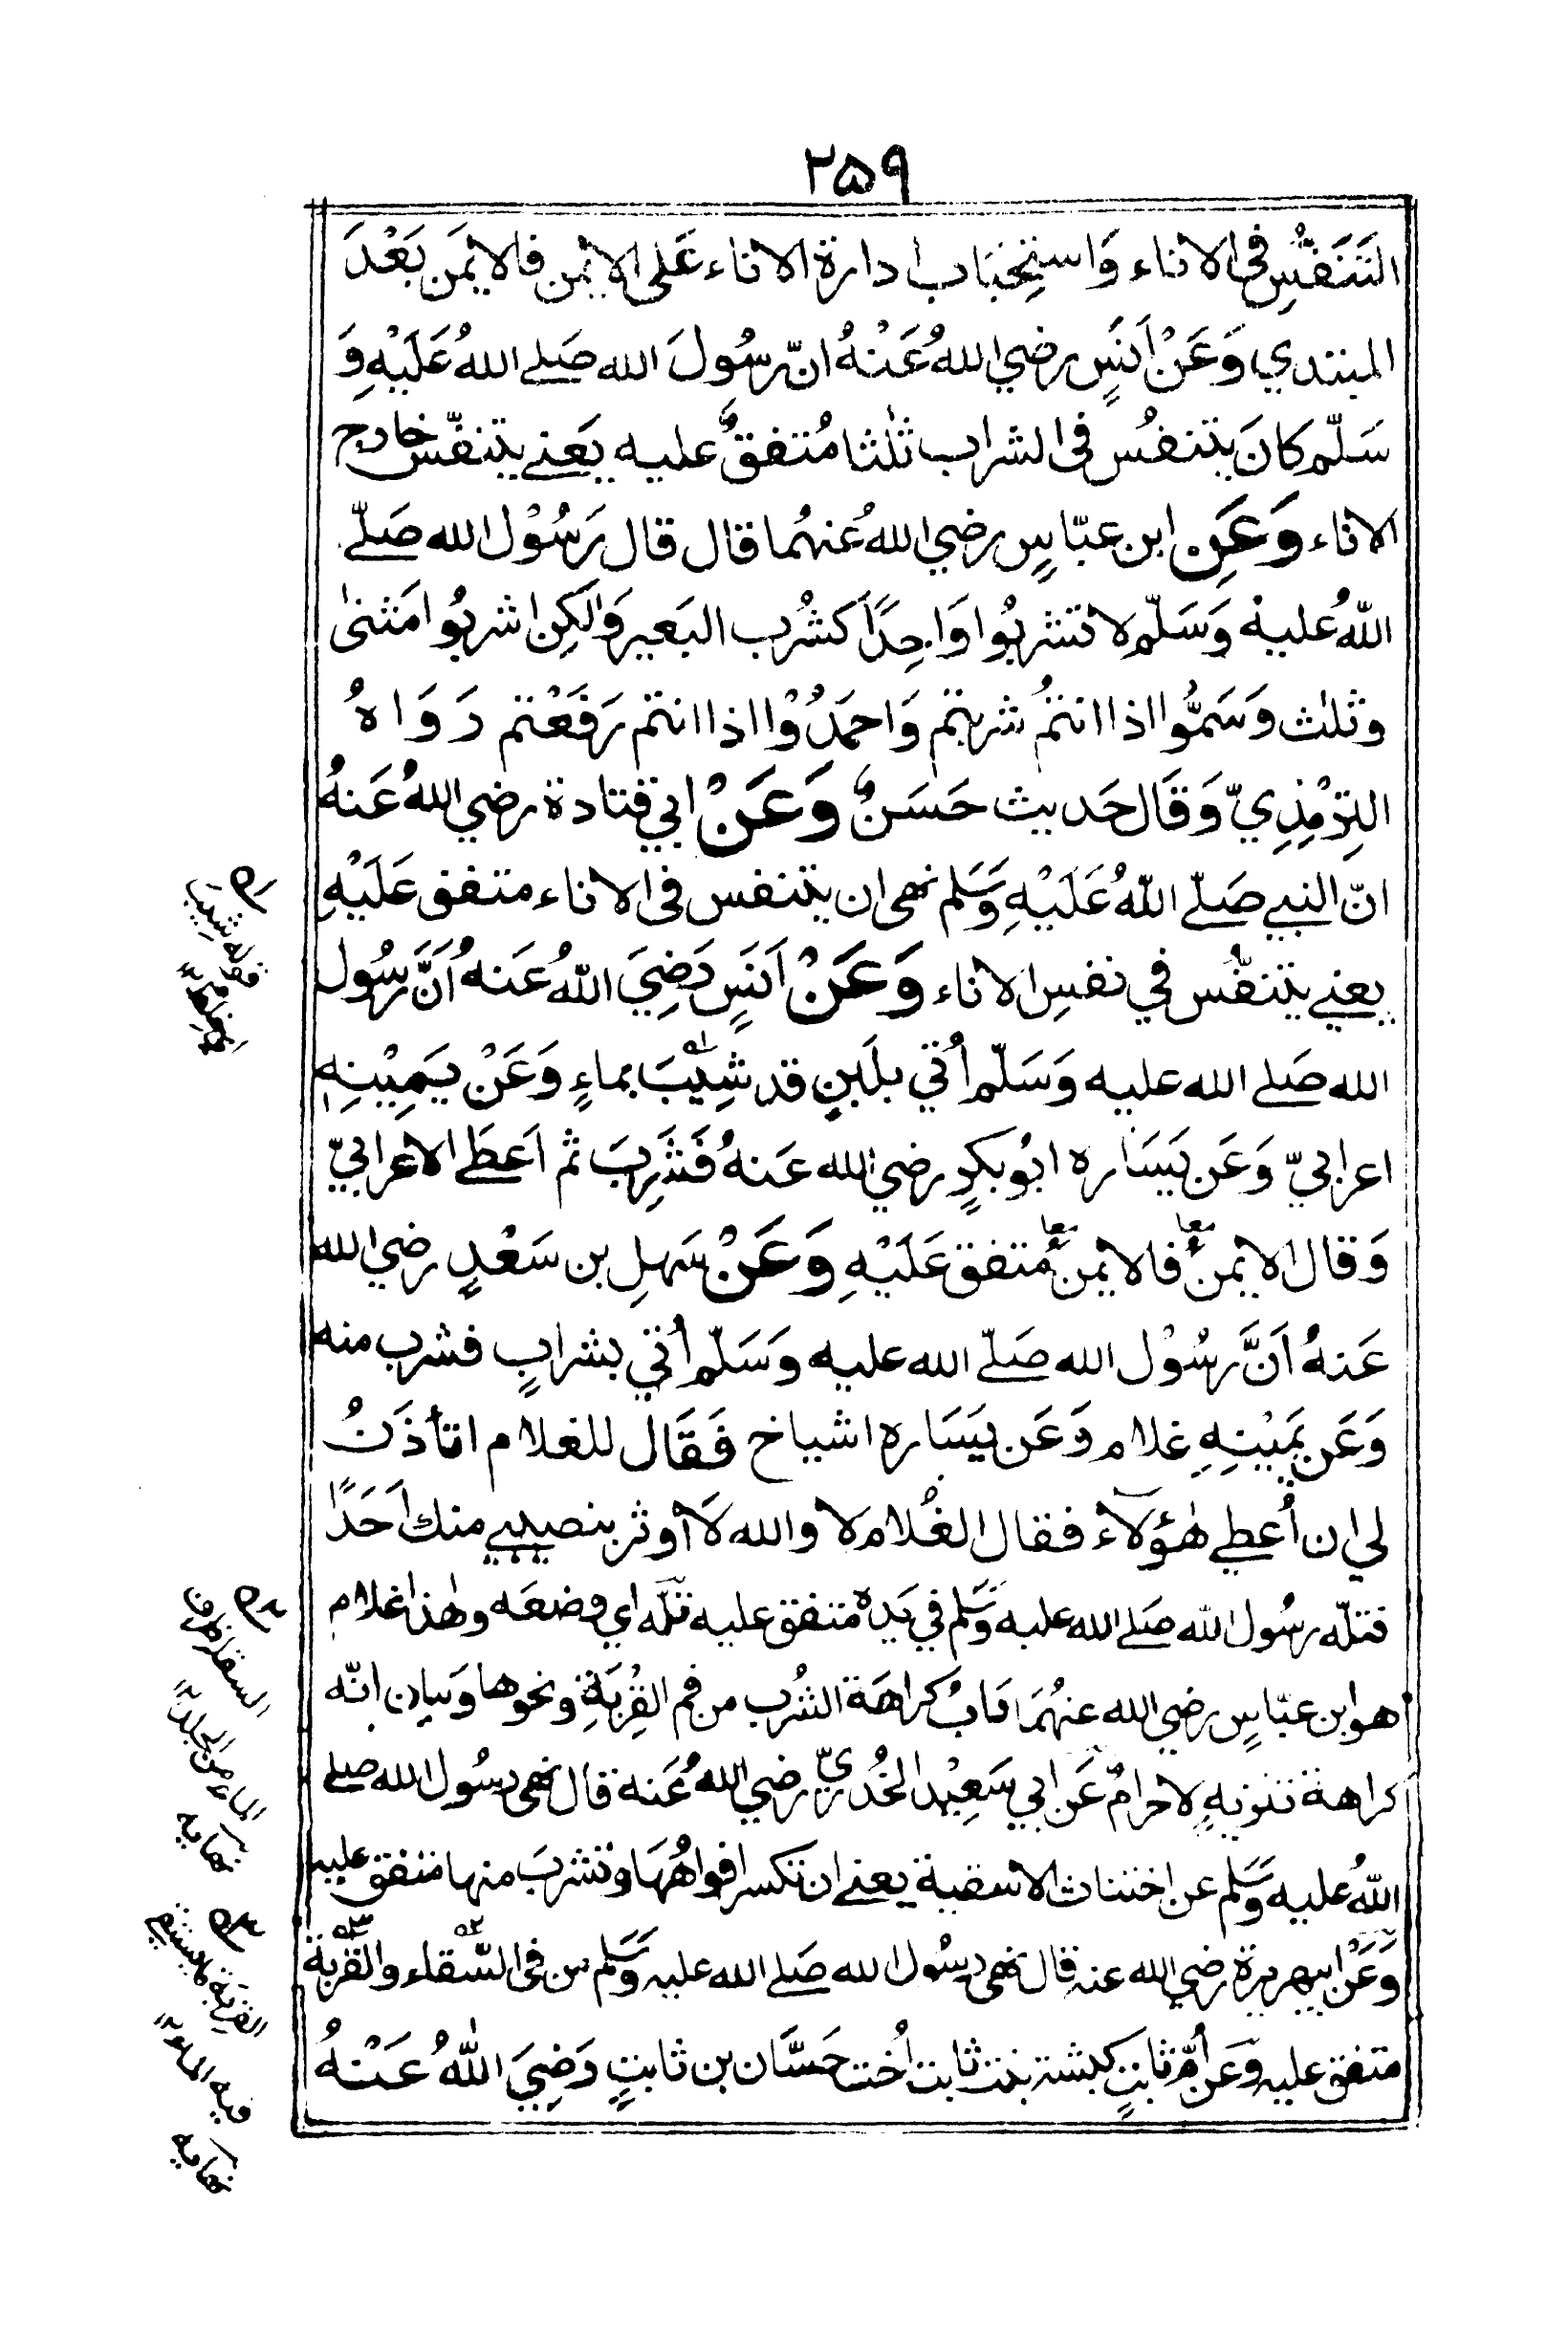 ۲۵۹
التَنَفُّسِ فى الاناء وَاستِحْبَاب ادارة الاناء عَلى الايْمن فالايْمَن بَعْدَ
المبتدي وَعَنْ اَنَسٍ رضي اللهُ عَنْهُ انّ رسُولَ الله صَلے اللهُ عَلَيْهِ وَ
سَلّم كانَ يتنفسُ فى الشراب ثلٰثا مُتفقٌ عليه يَعنے يتنفّس خارج
الاناء وَعَنِ ابن عبّاسٍ رضي اللهُ عنهُما قال قال رَسُوْل الله صَلّے
اللّٰهُ عليهْ وَسَلّم لا تشربُوا وَاحِدًا كشُرب البَعير وَلٰكِن اشربُوا مَثنىٰ
وثلٰث وَسَمُّوا اذا انتمُ شربتم وَاحمَدُوْا اذا انتم رَفَعْتم رَوَاهُ
التِرْمِذِيّ وَقَال حَديث حَسَنٌ وَعَنْ ابي قتادة رضي اللهُ عَنهُ
انّ النبے صَلّے اللّٰهُ عَلَيْهِ وَسَلم نهى ان يتنفس فى الاناء متفق عَلَيْهِ
يعنے يتنفّس في نفسِ الاناء وَعَنْ اَنَسٍ رَضِيَ اللّٰهُ عَنهُ اَنَّ رسُول
الله صَلے الله عليه وَسَلّم أُتي بلَبنٍ قد شِيْبَ بماءٍ وَعَنْ يَمِيْنِهٖ
اعرابيّ وَعَن يَسَاره ابُو بكرٍ رضي الله عَنهُ فَشَرِبَ ثم اَعطَے الاعرابيّ
وَقال الايمنَُ فالايمنَُ متفق عَلَيْهِ وَعَنْ سَهلِ بن سَعْدٍ رضي الله
عَنهُ اَنَّ رسُوْل الله صَلّے الله عليه وَسَلّم أُتي بشرابٍ فشرب منه
وَعَن يَمينِهِ غلام وَعَن يَسَاره اشياخ فَقَال للغلام اتأذَنُ
لي ان أُعطي هٰؤلآء فقال الغُلام لا والله لَا أُوثر بنصيبي منك اَحَدًا
فتلّه رسُول الله صَلے الله عليه وَسَلم في يَده متفق عليه تَلّه اي وضعَه وهٰذا غلام
هو ابن عبّاسٍ رضي الله عنهُمَا بابُ كراهَة الشُرب من فم القِرْبَةِ ونحوها وَبيان انّه
كراهة تنزيهٍ لا حرامٌ عَن ابي سَعِيْد الخُدريِّ رضي اللهُ عَنه قال نهى رسُول الله صلے
اللّٰهُ عليه وَسَلم عن اختناث الاسقية يعنے ان تكسر افواهُهَا وَتشربَ منها متفق عليه
وَعَنْ ابيهريرة رضي الله عنه قال نهى رسُول الله صَلے الله عليه وَسَلم من في السّقاء والقربة
متفق عليه وَعَن أُمّ ثابتٍ كبشة بنت ثابت أُخت حَسَّان بن ثابتٍ رَضِيَ اللّٰهُ عَنْهُ
قوله شِيْبَ
السقاء ظرف
الماء من الجلد
نهايه
القربة ما يستقى
فيه الماء
نهايه